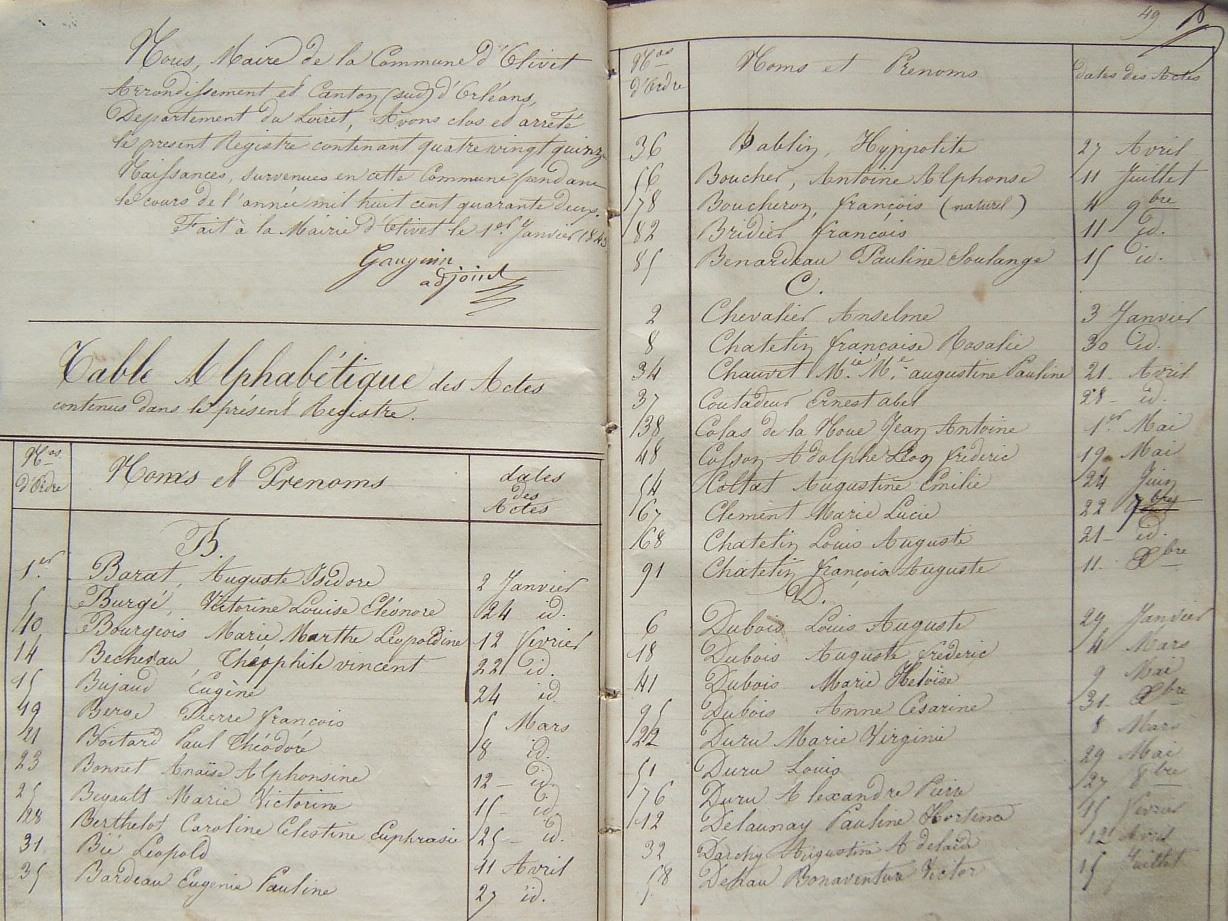 Nous, Maire de la Commune d'Olivet
Arrondissement et Canton (sud) d'Orléans,
Département du Loiret, Avons clos et arrêté
le présent Registre contenant quatre vingt quinze
Naissances, survenues en cette Commune pendant
le cours de l'année mil huit cent quarante deux.
Fait à la Mairie d'Olivet le 1er Janvier 1843
adjoint
Table Alphabétique des Actes
contenus dans le présent Registre.
Nos d'Ordre Noms et Prenoms dates des Actes
B.
1er Barat, Auguste Isidore 2 Janvier
5 Burgé, Victorine Louise Eléonore 24 id.
10 Bourgeois Marie Marthe Léopoldine 12 Février
14 Becheveau, Théophile vincent 22 id.
15 Bujaud Eugène 24 id
19 Berge Pierre françois 5 Mars
21 Boitard Paul Théodore 8 id.
23 Bonnet Anaïse Alphonsine 12 id
25 Begault Marie Victorine 15 id
28 Berthelot Caroline Celestine Euphrasie 25 id.
31 Bié Léopold 11 Avril
35 Bardeau Eugenie Pauline 27 id.
49
Nos d'Ordre Noms et Prenoms dates des Actes
36 Bablin, Hyppolite 27 Avril
56 Boucher, Antoine Alphonse 11 Juillet
78 Boucheron, françois (naturel) 4 9bre
82 Bridier françois 11 id.
85 Benardeau Pauline Soulange 15 id.
C.
2 Chevalier Anselme 3 Janvier
8 Chatelin françoise Rosalie 30 id.
34 augustine Pauline 21 Avril
37 Coutadeur Ernest abel 28 id.
38 Colas de la Noue Jean Antoine 1er Mai
48 Cosson Adolphe Léon fréderic 19 Mai
54 Coltat Augustine Emilie 24 Juin
67 Clement Marie Lucie 22 7bre
68 Chatelin Louis Auguste 21 id.
91 Chatelin françois Auguste 11 Xbre
D.
6 Dubois Louis Auguste 29 Janvier
18 Dubois Auguste fréderic 4 Mars
41 Dubois Marie Héloïse 9 Mai
95 Dubois Anne Césarine 31 Xbre
22 Duru Marie Virginie 8 Mars
51 Duru Louis 29 Mai
76 Duru Alexandre Pierre 27 8bre
12 Delaunay Pauline Hortense 15 Février
32 Darchy Augustine Adelaïde 12 Avril
58 Bonaventure Victor 15 Juillet